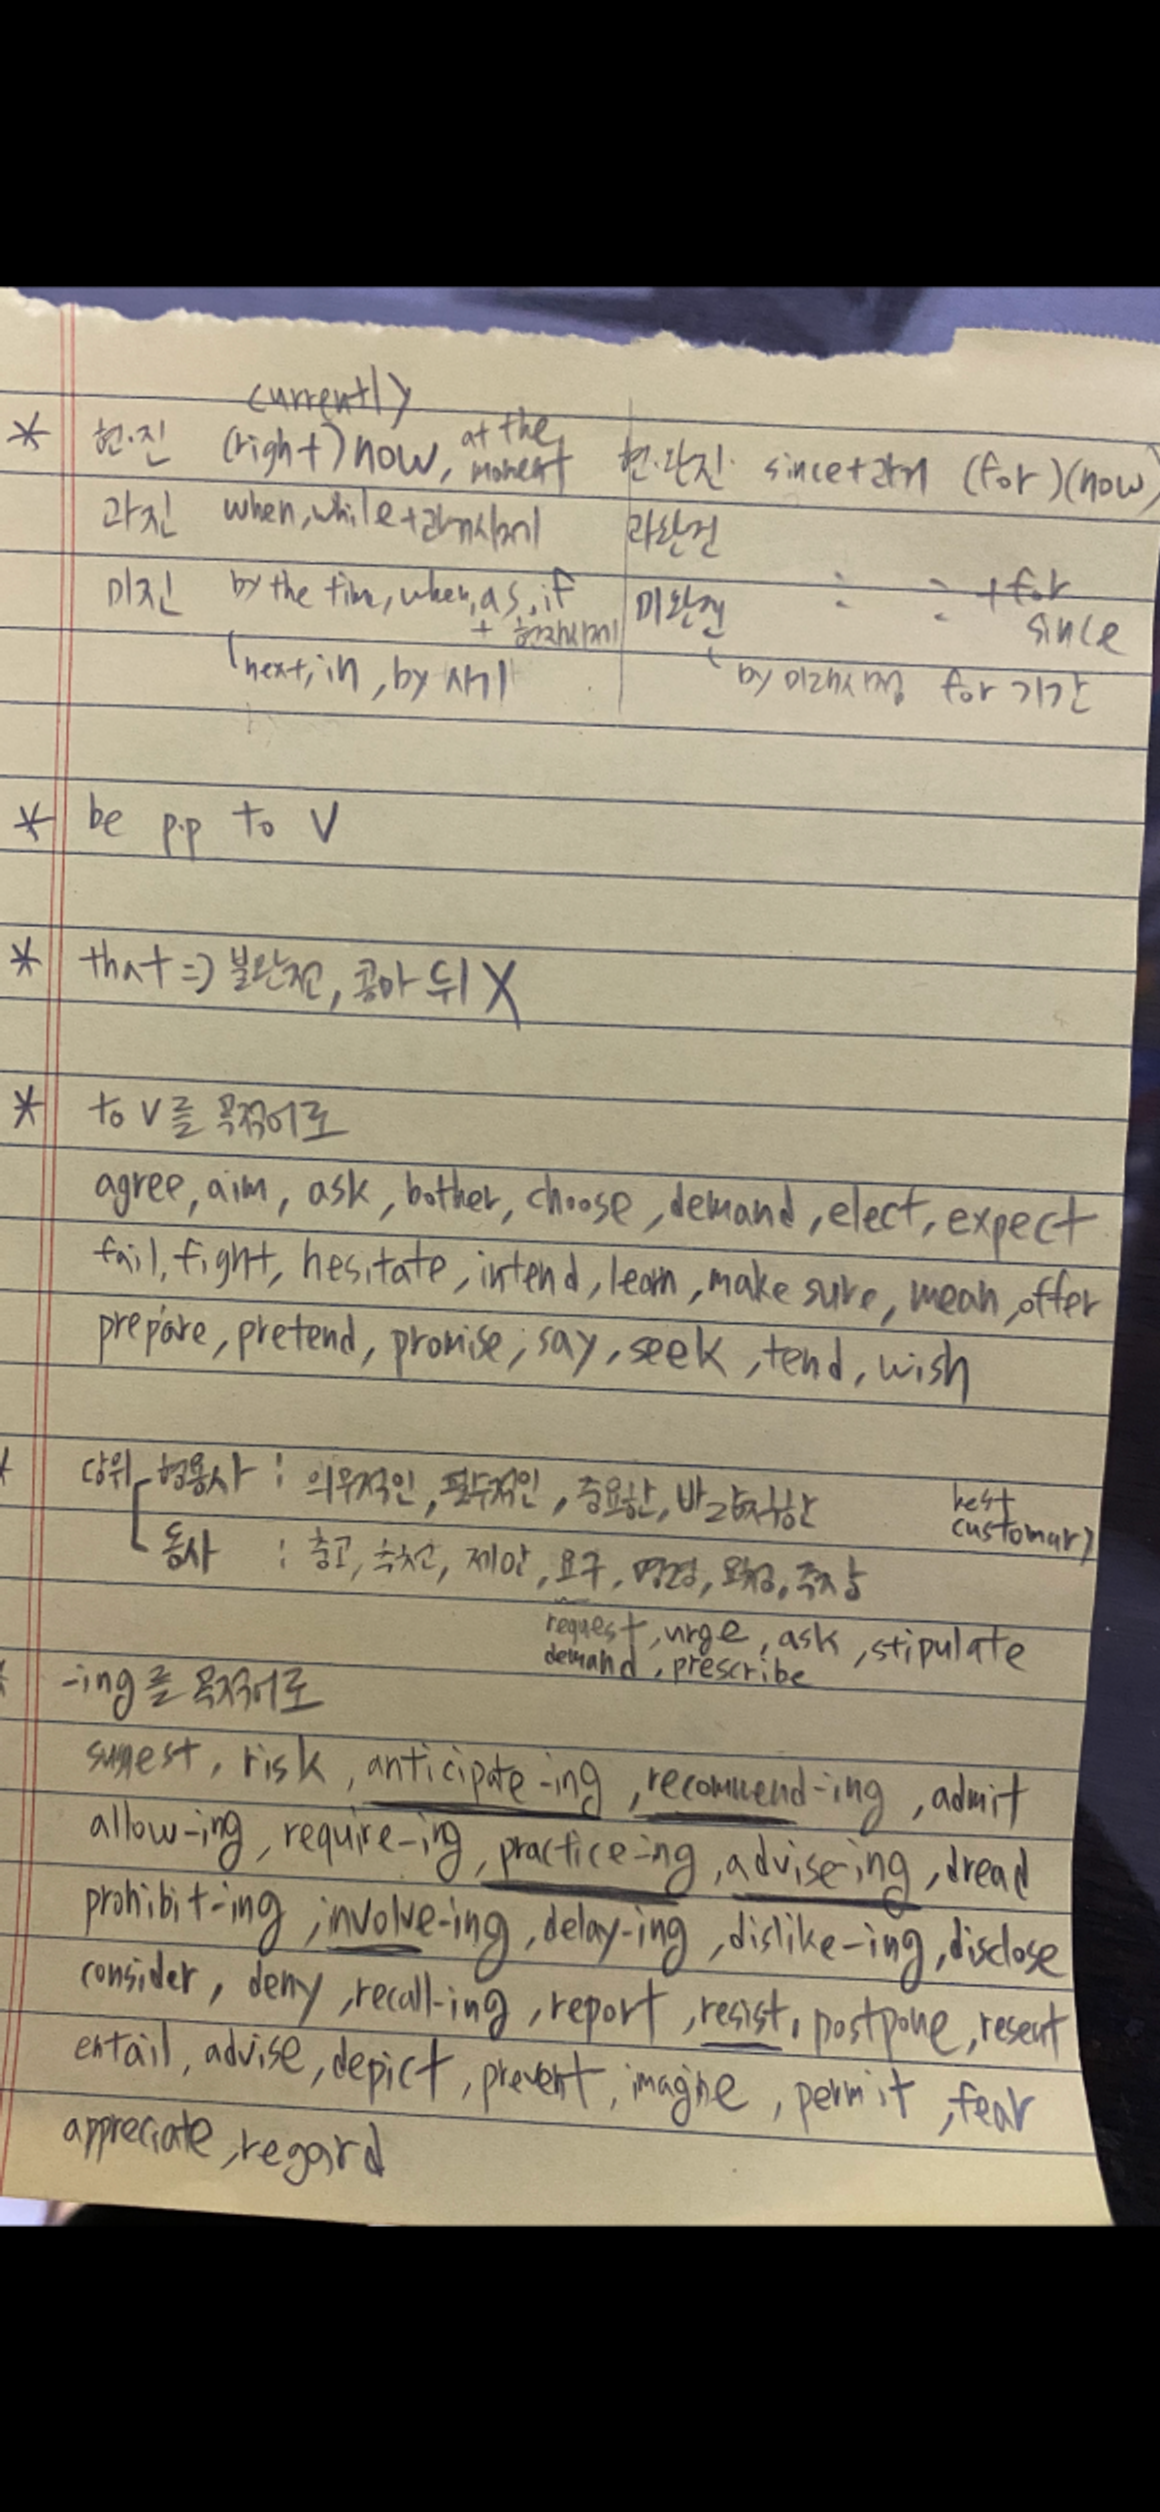 currently
* 현·진 (right) now, at the moment 현·완진· since+과거 (for)(now)
과진 when, while+과거시제 과완진
미진 by the time, when, as, if + 현재시제 미완진 : : + for since
next, in, by 시기 by 미래시점 for 기간
* be p.p to V
* that => 불완전, 콤마 뒤 X
* to V를 목적어로
agree, aim, ask, bother, choose, demand, elect, expect
fail, fight, hesitate, intend, learn, make sure, mean, offer
prepare, pretend, promise, say, seek, tend, wish
당위 형용사 : 의무적인, 필수적인, 중요한, 바람직한 best customary
동사 : 충고, 추천, 제안, 요구, 명령, 요청, 주장
request, urge, ask, stipulate
demand, prescribe
* -ing를 목적어로
suggest, risk, anticipate -ing, recommend-ing, admit
allow-ing, require-ing, practice-ing, advise-ing, dread
prohibit-ing, involve-ing, delay-ing, dislike-ing, disclose
consider, deny, recall-ing, report, resist, postpone, resent
entail, advise, depict, prevent, imagine, permit, fear
appreciate, regard